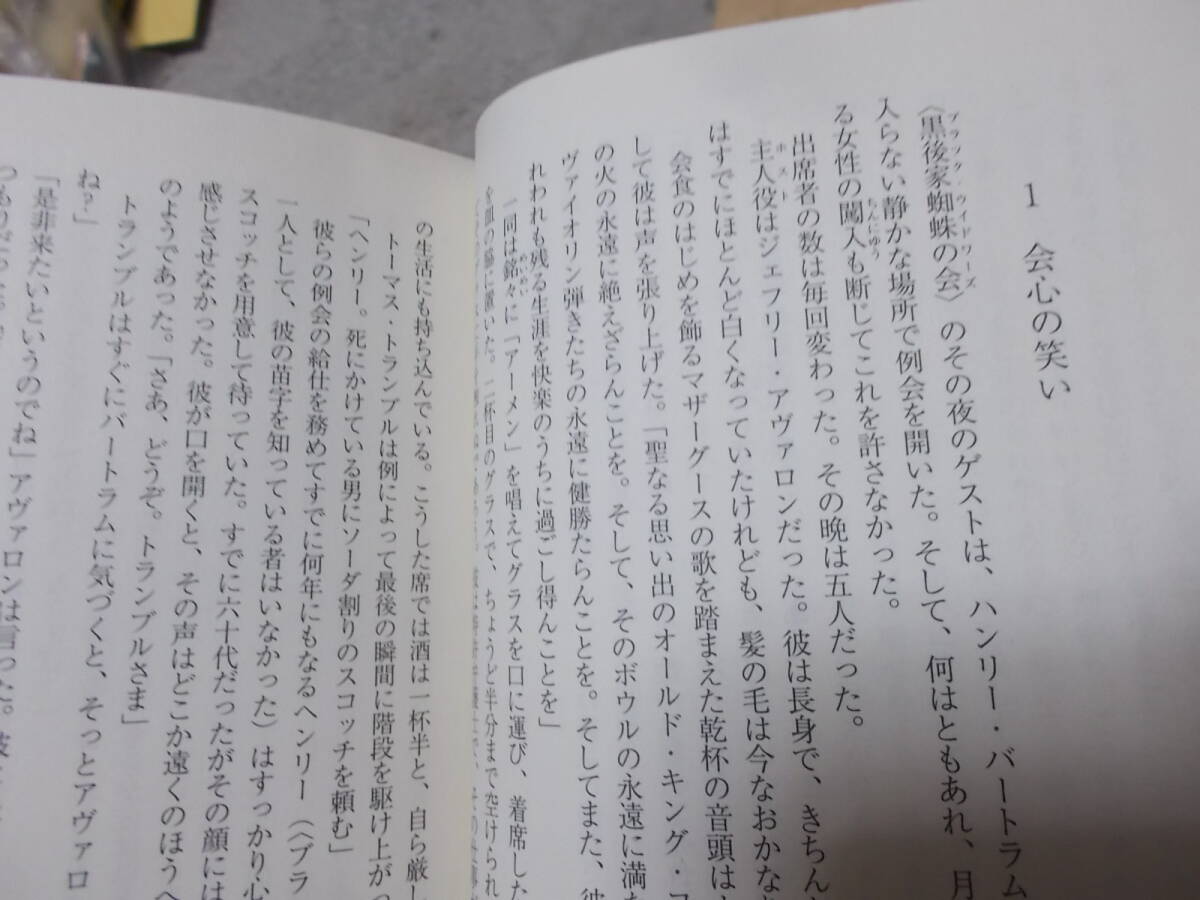 1　会心の笑い
〈黒後家蜘蛛の会〉のその夜のゲストは、ハンリー・バートラム
ブラック・ウイドワーズ
入らない静かな場所で例会を開いた。そして、何はともあれ、月
る女性の闖入も断じてこれを許さなかった。
ちんにゆう
出席者の数は毎回変わった。その晩は五人だった。
主人役はジェフリー・アヴァロンだった。彼は長身で、きちん
ホスト
はすでにほとんど白くなっていたけれども、髪の毛は今なおかな
会食のはじめを飾るマザーグースの歌を踏まえた乾杯の音頭は
して彼は声を張り上げた。「聖なる思い出のオールド・キング・コ
の火の永遠に絶えざらんことを。そして、そのボウルの永遠に満
ヴァイオリン弾きたちの永遠に健勝たらんことを。そしてまた、彼
れわれも残る生涯を快楽のうちに過ごし得んことを」
一同は銘々に「アーメン」を唱えてグラスを口に運び、着席した
めいめい
を皿の脇に置いた。二杯目のグラスで、ちょうど半分まで空けられ
の生活にも持ち込んでいる。こうした席では酒は一杯半と、自ら厳し
トーマス・トランブルは例によって最後の瞬間に階段を駆け上がっ
「ヘンリー。死にかけている男にソーダ割りのスコッチを頼む」
彼らの例会の給仕を務めてすでに何年にもなるヘンリー（〈ブラ
一人として、彼の苗字を知っている者はいなかった）はすっかり心
スコッチを用意して待っていた。すでに六十代だったがその顔には
感じさせなかった。彼が口を開くと、その声はどこか遠くのほうへ
のようであった。「さあ、どうぞ。トランブルさま」
トランブルはすぐにバートラムに気づくと、そっとアヴァロ
ね？」
「是非来たいというのでね」アヴァロンは言った。